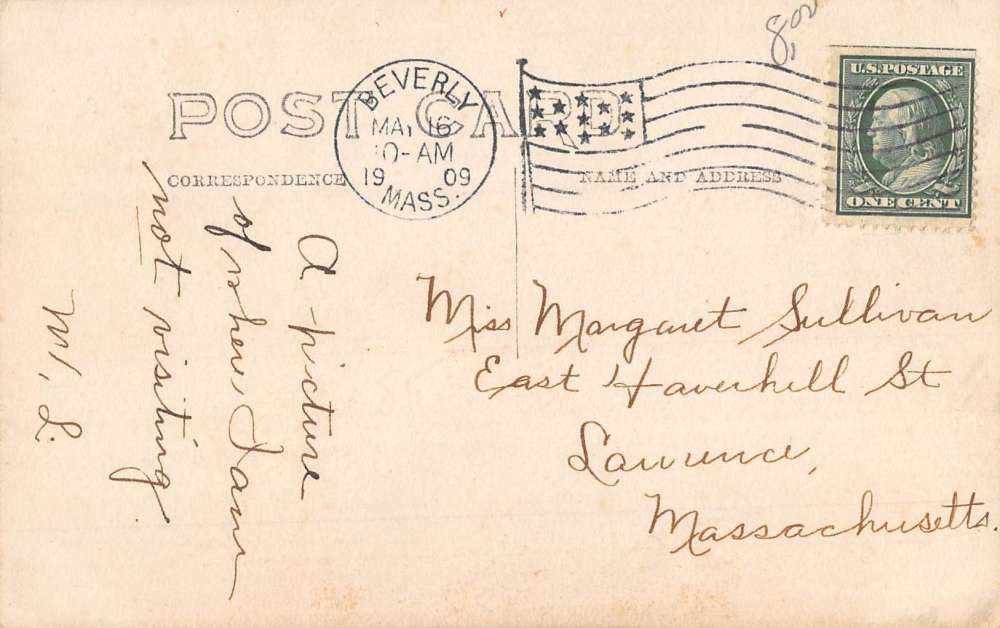 8.00
U.S. POSTAGE
ONE CENT
POST CARD
BEVERLY
MAY 16
10-AM
19 09
MASS.
CORRESPONDENCE
NAME AND ADDRESS
A picture
of where I am
not visiting.
M. L.
Miss Margaret Sullivan
East Haverhill St
Lawrence,
Massachusetts.